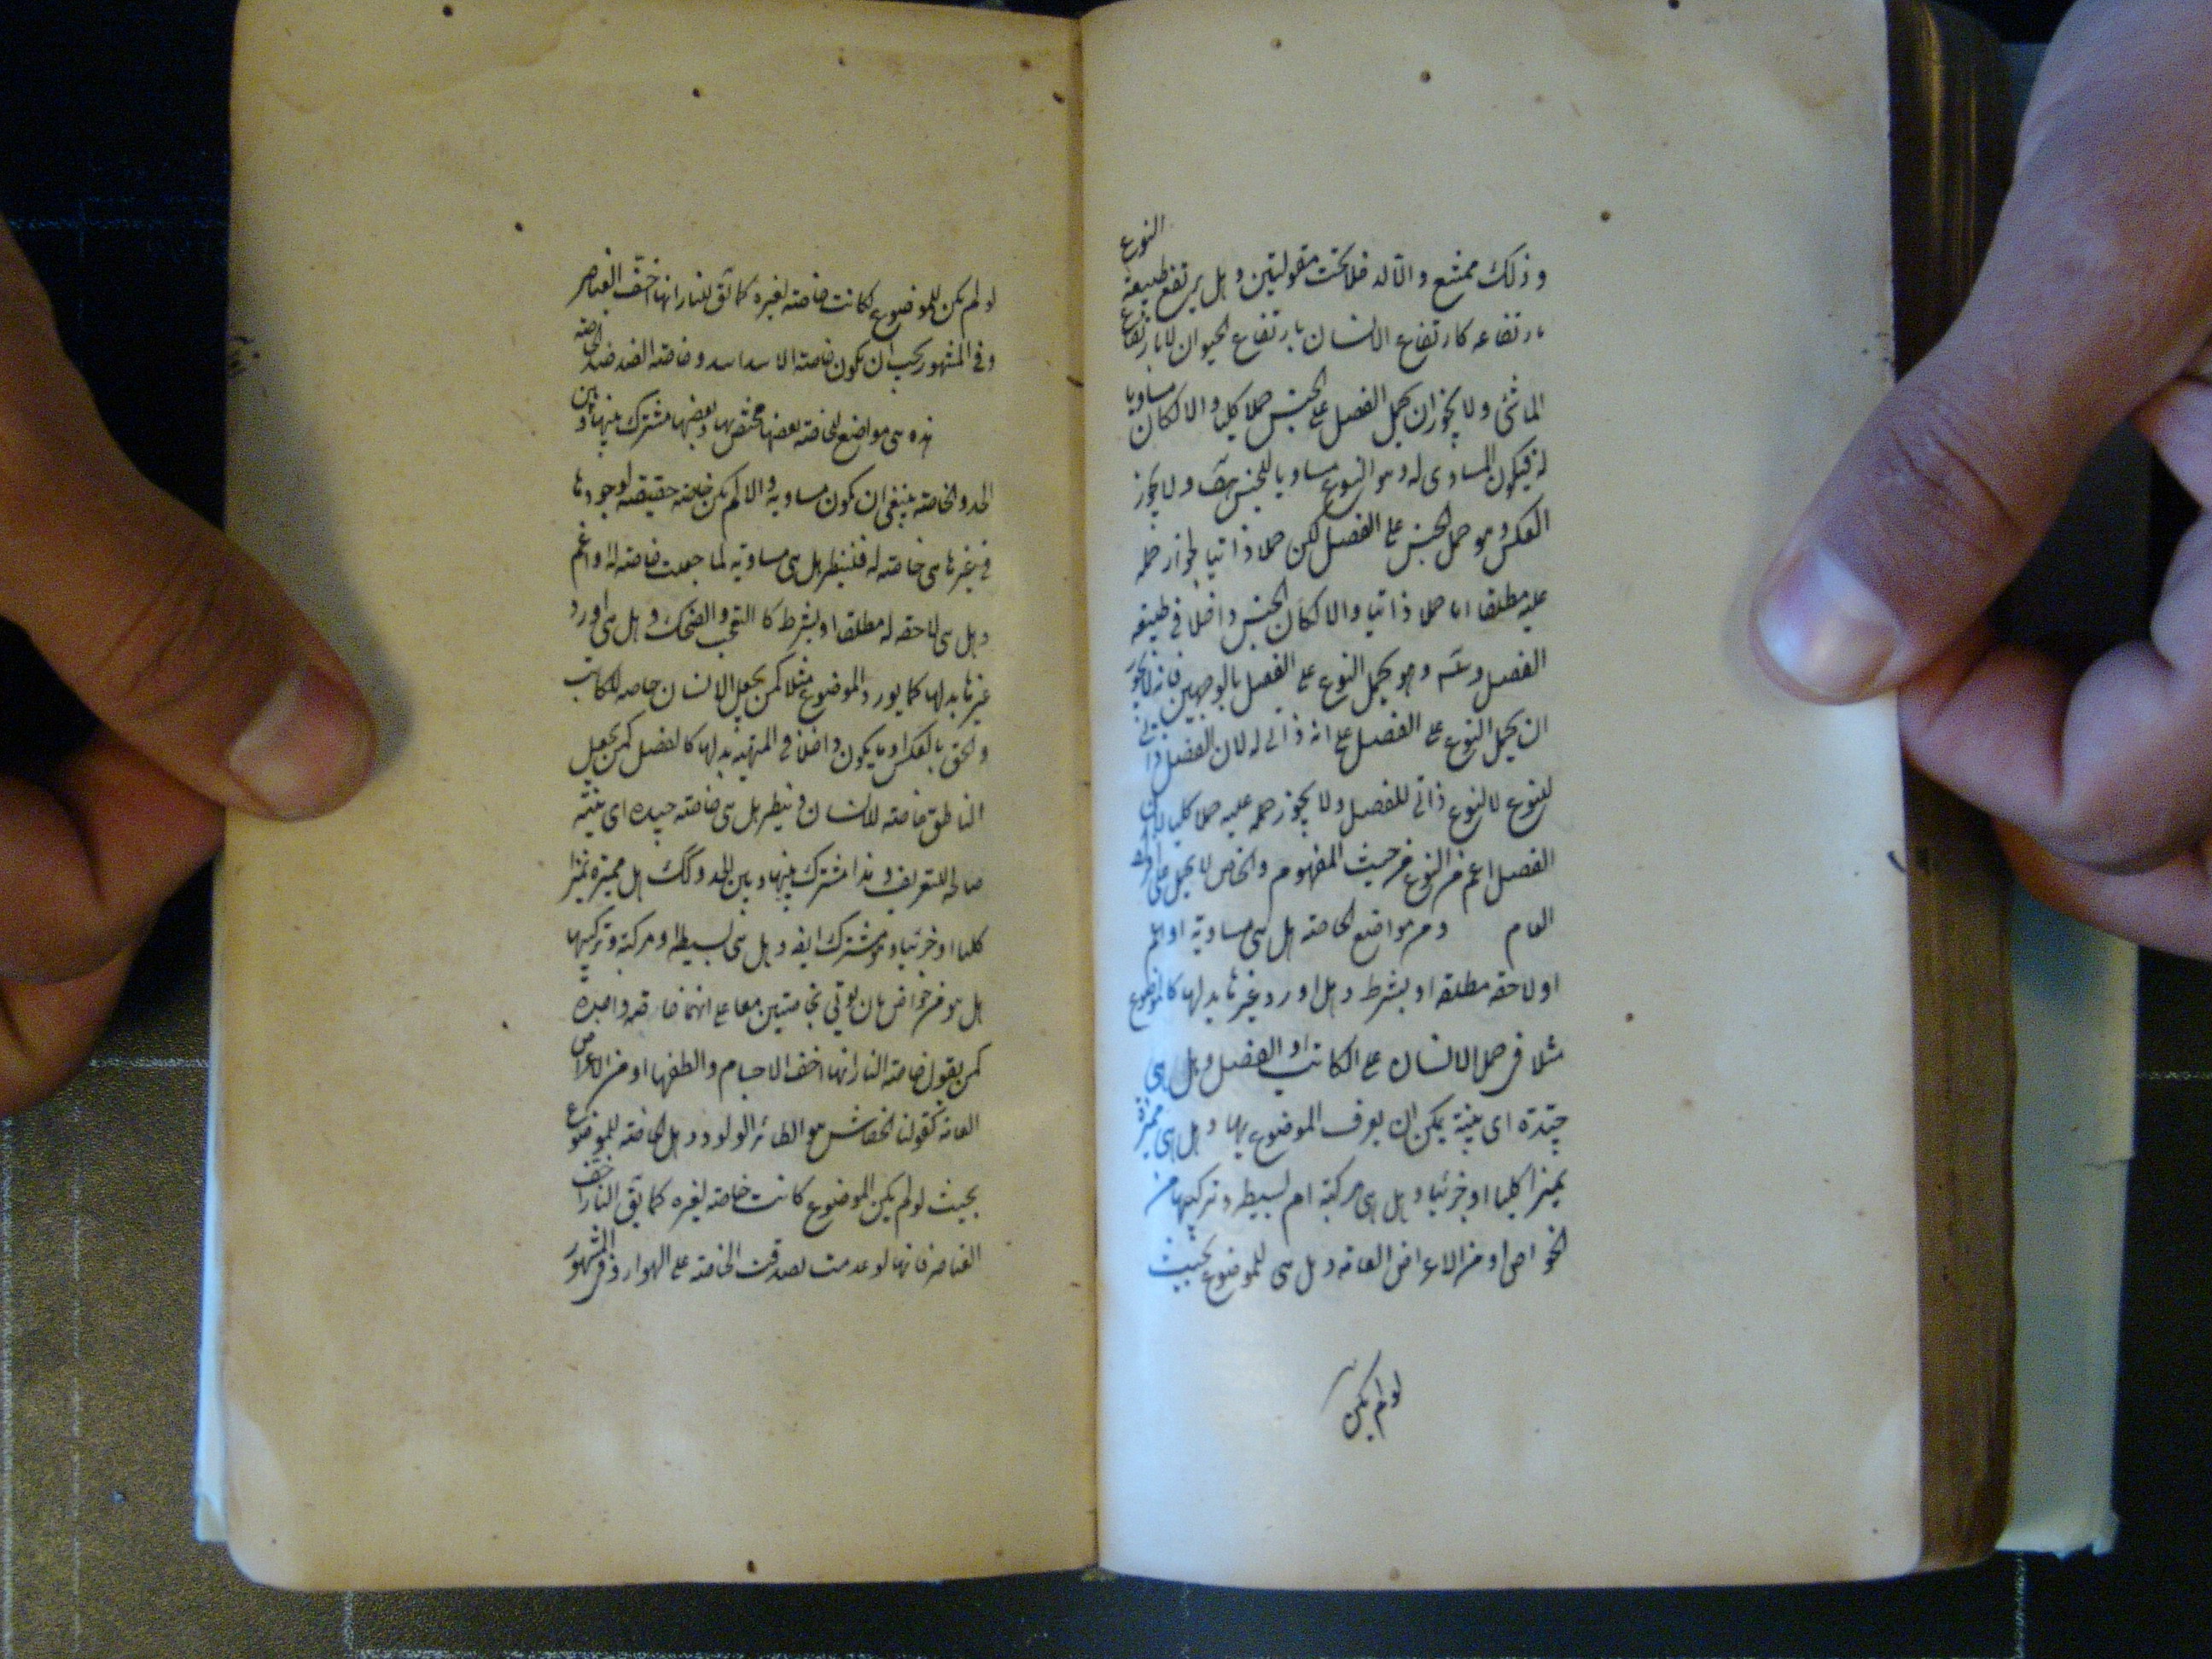 وذلك ممتنع والا له فلا تحت مقولتين وهل يرتفع طبيعة النوع
بارتفاعه كارتفاع الانسان بارتفاع الحيوان لا بارتفاع
الماشي ولا يجوز ان يحمل الفصل على الجنس حملا كليا والا لكان مساويا
له فيكون المساوى له وهو النوع مساويا للجنس هف ولا يجوز
العكس وهو حمل الجنس على الفصل لكن حملا ذاتيا لجواز حمله
عليه مطلقا اما حملا ذاتيا والا لكان الجنس داخلا في طبيعة
الفصل وهو يحمل النوع على الفصل بالوجهين فانه لا يجوز
ان يحمل النوع على الفصل على انه ذاتي له لان الفصل ذاتي
للنوع لا النوع ذاتي للفصل ولا يجوز حمله عليه حملا كليا لان
الفصل اعم من النوع من حيث المفهوم والخاص لا يحمل على
العام ومن مواضع الخاصة هل هي مساوية او اعم
او لاحقة مطلقة او بشرط وهل اورد غيرها بدلها كالموضوع
مثلا في حمل الانسان على الكاتب او الفصل وهل هي
جيّدة اى بينة يمكن ان يعرف الموضوع بها وهل هي مميزة
تميزا كليا او جزئيا وهل هي مركبة ام بسيطة وتركيبها من
الخواص او من الاعراض العامة وهل هي للموضوع بحيث
لو لم يكن
لو لم يكن للموضوع لكانت خاصة لغيره كما يق للنار انها اخف العناصر
وفي المشهور يجب ان يكون خاصة الاسد اسد وخاصة الضد ضد الخاصة
هذه هي مواضع الخاصة بعضها مختص بها وبعضها مشترك بينها وبين
الحد والخاصة ينبغي ان تكون مساوية والا لم تكن خاصة حقيقة لوجودها
في غيرها هي خاصة له فلينظر هل هي مساوية لما جعلت خاصة له او اعم
وهل هي لاحقة له مطلقا او بشرط كالتعجب والضحك وهل هي اورد
غيرها بدلها كما يورد الموضوع مثلا كمن يجعل الانسان خاصة للكاتب
والحق بالعكس او ما يكون داخلا في المهية بدلها كالفصل كمن يجعل
الناطق خاصة للانسان وينظر هل هي خاصة جيده اى بينة
صالحة للتعريف وهذا مشترك بينها وبين الحد وكك هل مميزة تميزا
كليا او جزئيا وهو مشترك ايضا وهل هي بسيطة او مركبة وتركيبها
هل هو من خواص بان يؤتي بخاصتين معا على انهما خاصة واحدة
كمن يقول خاصة النار انها اخف الاجسام والطفها او من الاعراض
العامة كقولنا الخفاش هو الطائر الولود وهل الخاصة للموضوع
بحيث لو لم يكن الموضوع كانت خاصة لغيره كما يق النار اخف
العناصر فانها لو عدمت لصدقت الخاصة على الهواء وفي المشهور